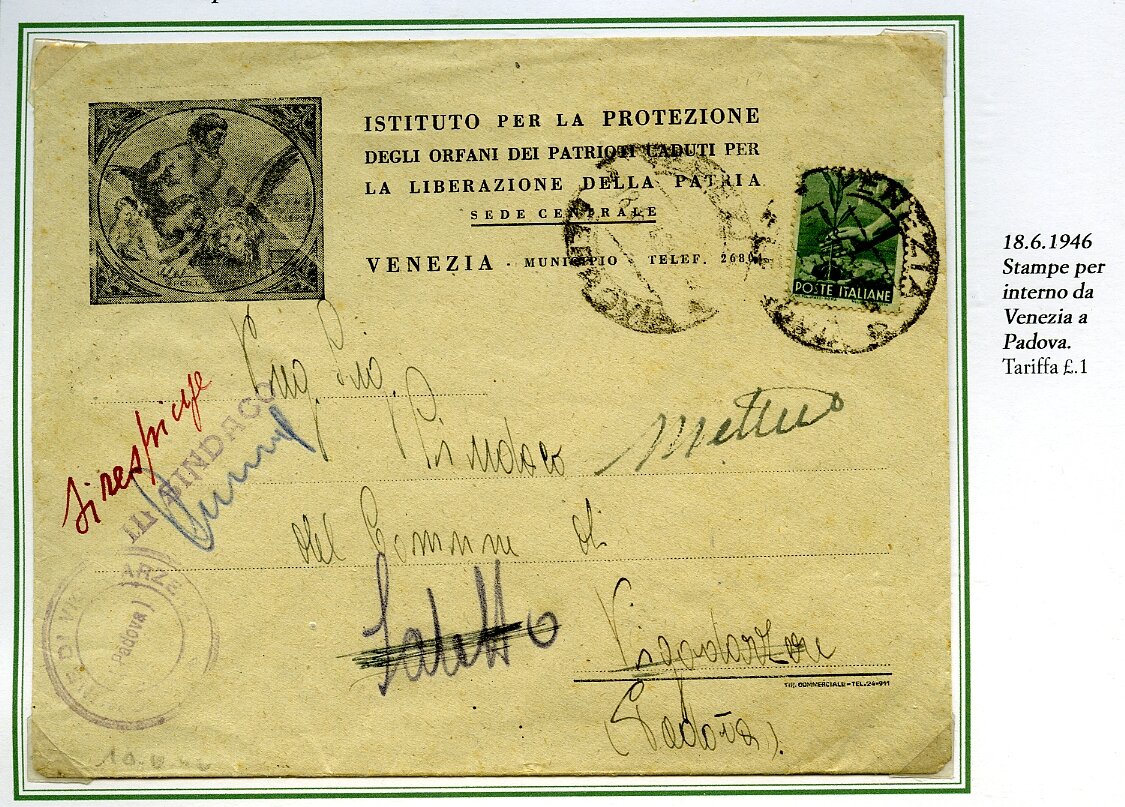 ISTITUTO PER LA PROTEZIONE
DEGLI ORFANI DEI PATRIOTI CADUTI PER
LA LIBERAZIONE DELLA PATRIA
SEDE CENTRALE
VENEZIA - MUNICIPIO TELEF. 2680
VENEZIA
POSTE ITALIANE
18.6.1946
Stampe per
interno da
Venezia a
Padova.
Tariffa £.1
si respinge
IL SINDACO
Sindaco
del Comune di
Saletto
Vigodarzere
TIP. COMMERCIALE - TEL. 24-911
(Padova).
Padova)